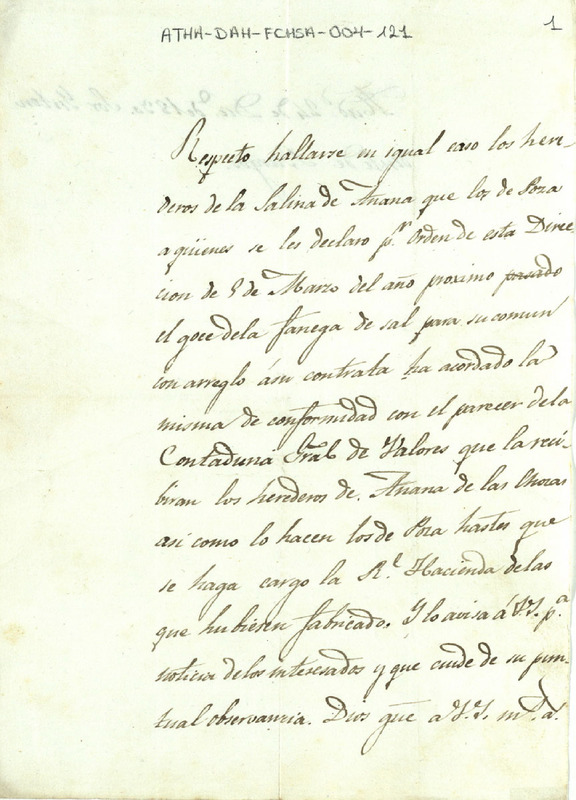 ATHA-DAH-FCHSA-004-121
1
Respecto hallarse en igual caso los here-
deros de la Salina de Añana que los de Poza
a quienes se les declaro pr. orden de esta Direc
cion de 9 de Marzo del año proximo pasado
el goce dela fanega de sal para su comun
con arreglo ásu contrata ha acordado la
misma de conformidad con el parecer dela
Contaduria Gral de Valores que la reci
biran los herederos de Añana de las Chozas
asi como lo hacen los de Poza hasta que
se haga cargo la Rl. Hacienda delas
que hubieren fabricado. Y lo avisa á V.S. pa.
noticia delos interesados y que cuide de su pun-
tual observancia. Dios gue a V.S. ms. as.